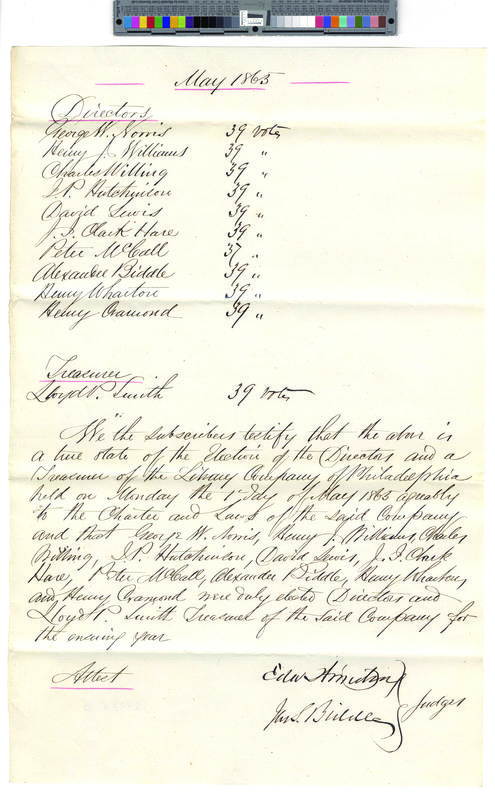 May 1863
Directors
George W. Norris 39 Votes
Henry J. Williams 39 "
Charles Willing 39 "
I. P. Hutchinson 39 "
David Lewis 39 "
J. I. Clark Hare 39 "
Peter McCall 37 "
Alexander Biddle 39 "
Henry Wharton 39 "
Henry Cramond 39 "
Treasurer
Lloyd P. Smith 39 Votes
We the subscribers testify that the above is
a true state of the Election of the Directors and a
Treasurer of the Library Company of Philadelphia
held on Monday the day of May 1863 agreeably
to the Charter and Laws of the said Company
and that George W. Norris, Henry J. Williams, Charles
Willing, I. P. Hutchinson, David Lewis, J. I. Clark
Hare, Peter McCall, Alexander Biddle, Henry Wharton,
and Henry Cramond were duly elected Directors and
Lloyd P. Smith Treasurer of the said Company for
the ensuing year
Attest
Edw Armstrong
Jas. S. Biddle
Judges